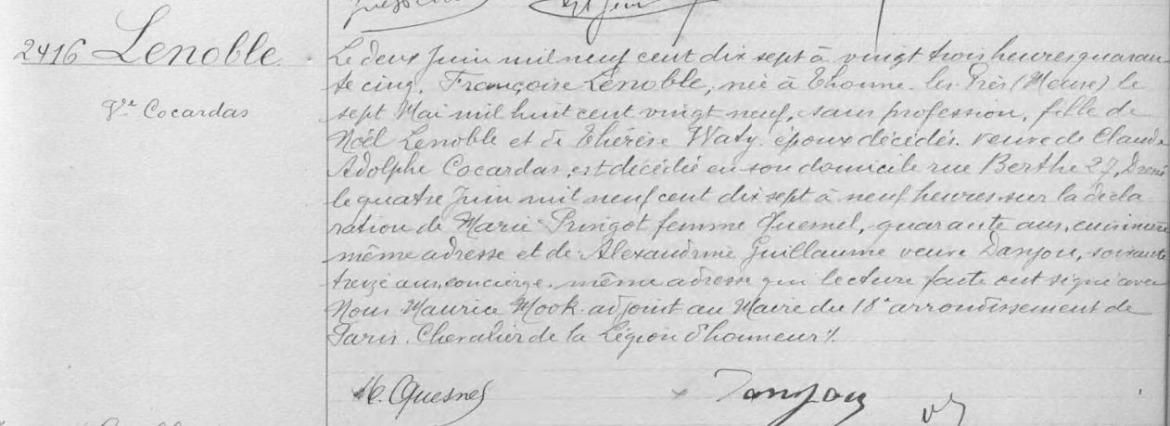 2416 Lenoble
Vve Cocardas
Le deux Juin mil neuf cent dix sept à vingt trois heures quaran
te cinq, Françoise Lenoble, née à Thonne-les-Près (Meuse) le
sept Mai mil huit cent vingt neuf, sans profession, fille de
Noël Lenoble et de Thérèse Waty, époux décédés. veuve de Claude
Adolphe Cocardas, est décédée en son domicile rue Berthe 27, Dressé
le quatre Juin mil neuf cent dix sept à neuf heures, sur la décla
ration de Marie femme Quesnel, quarante ans, cuisinière
même adresse et de Alexandrine Guillaume veuve Danjou, soixante
treize ans, concierge, même adresse qui lecture faite ont signé avec
Nous Maurice Mook adjoint au Maire du 18e arrondissement de
Paris. Chevalier de la Légion d'honneur ./.
M. Quesnel
Danjou